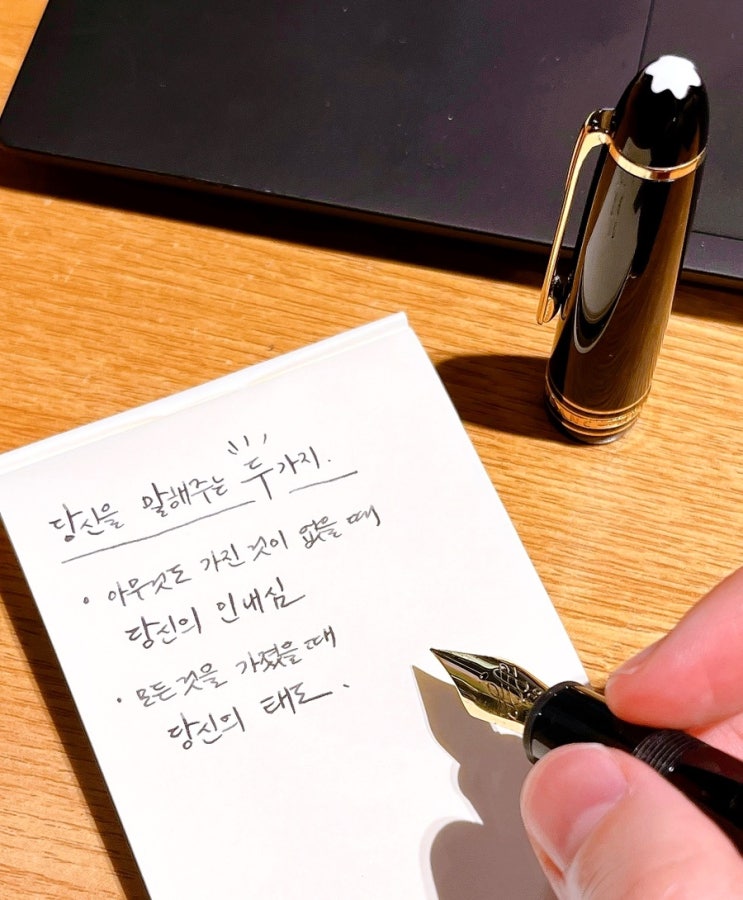 당신을 말해주는 두가지.
• 아무것도 가진 것이 없을 때
당신의 인내심
• 모든 것을 가졌을 때
당신의 태도.